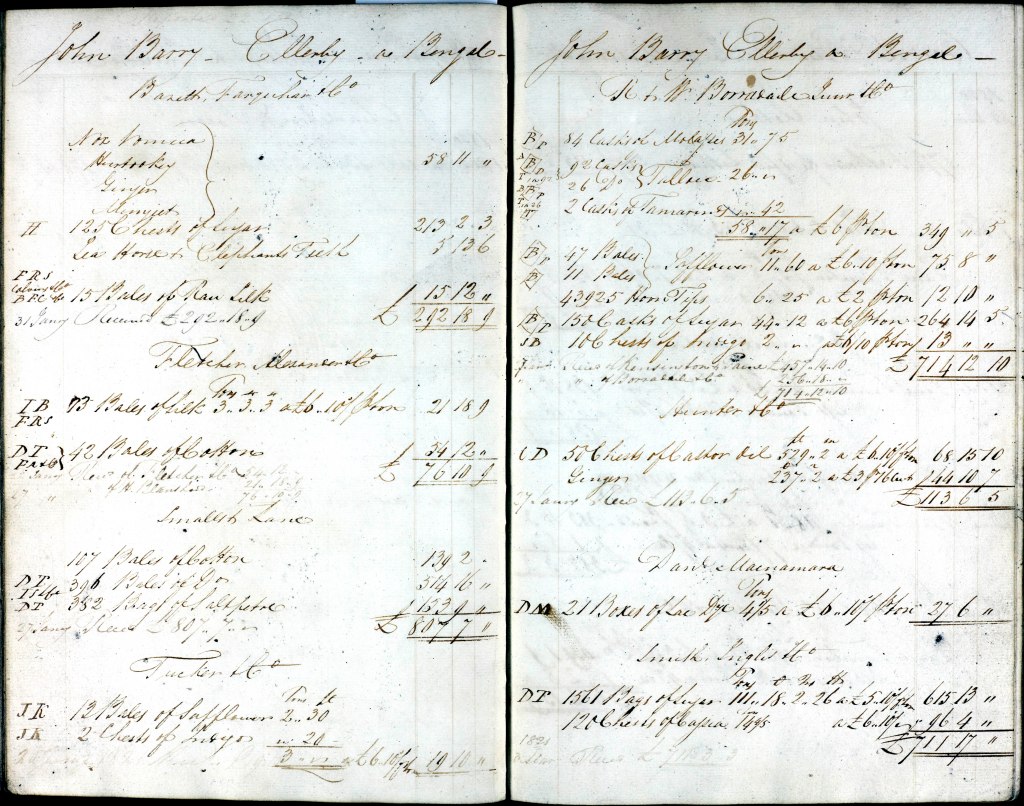 John Barry - Ellerby - a Bengal -
Baretto, Farquhar & Co
Nox Vomica
Hurtokey
Ginger
Munjet
58 11 "
H 125 Chests of Sugar 213 2 3
Sea Horse & Elephants Teeth 5 13 6
FRS
BFC & Co 15 Bales of Raw Silk £ 15 12 "
31 Jany Received £292.. 18.. 9 £ 292 18 9
Fletcher Alexander & Co
Tons
IB 73 Bales of Silk 3.. 3.. 3 a £6..10/ P ton 21 18 9
FRS
DT 42 Bales of Cotton £ 54 12 "
£ 76 10 9
Smalls & Lane
107 Bales of Cotton 139 2 "
DT 396 Bales of Do 514 16 "
DT 352 Bags of Saltpetre £ 153 9 "
27 Jany Recd £807.. 7.. " £ 807 7 "
Tucker & Co
Tons ft
JK 13 Bales of Safflower 2.. 30
JK 2 Chests of Indigo " 20
3 " " a £6..10/ P ton 19 10 "
John Barry Ellerby a Bengal -
R & Wm Borradaile Junr & Co
Tons
BP 84 Casks of Molasses 31.. 75
92 Casks
26 Do Tallow 26 " "
2 Casks Tamarind " 42
58 " 17 a £6 P ton 349 " 5
B 47 Bales
B 11 Bales Safflower 11.. 60 a £6..10 P ton 75 8 "
43925 Horn Tips 6.. 25 a £2 P ton 12 10 "
BP 150 Casks of Sugar 44.. 12 a £6 P ton 264 14 5
JB 10 Chests of Indigo 2 " " a £6/10 P ton 13 " "
£ 714 12 10
" Borradaile & Co 256..18.. "
£ 714..12..10
Hunter & Co
CD 50 Chests of Castor Oil 529.. 2 a £6..10/ P ton 68 15 10
Ginger 237.. 2 a £3 P 16 Cwt £ 44 10 7
27 Jany Recd £113.. 6.. 5 £ 113 6 5
David Macnamara
Tons
DM 21 Boxes of Lac Dye 4/5 a £6..10/ P ton 27 6 "
Smith, Inglis & Co
Tons
DT 1561 Bags of Sugar 111.. 18.. 2.. 26 a £5..10/ P ton 615 13 "
120 Chests of Cassia a £6..10/ 96 4 "
£ 711 17 "
1821